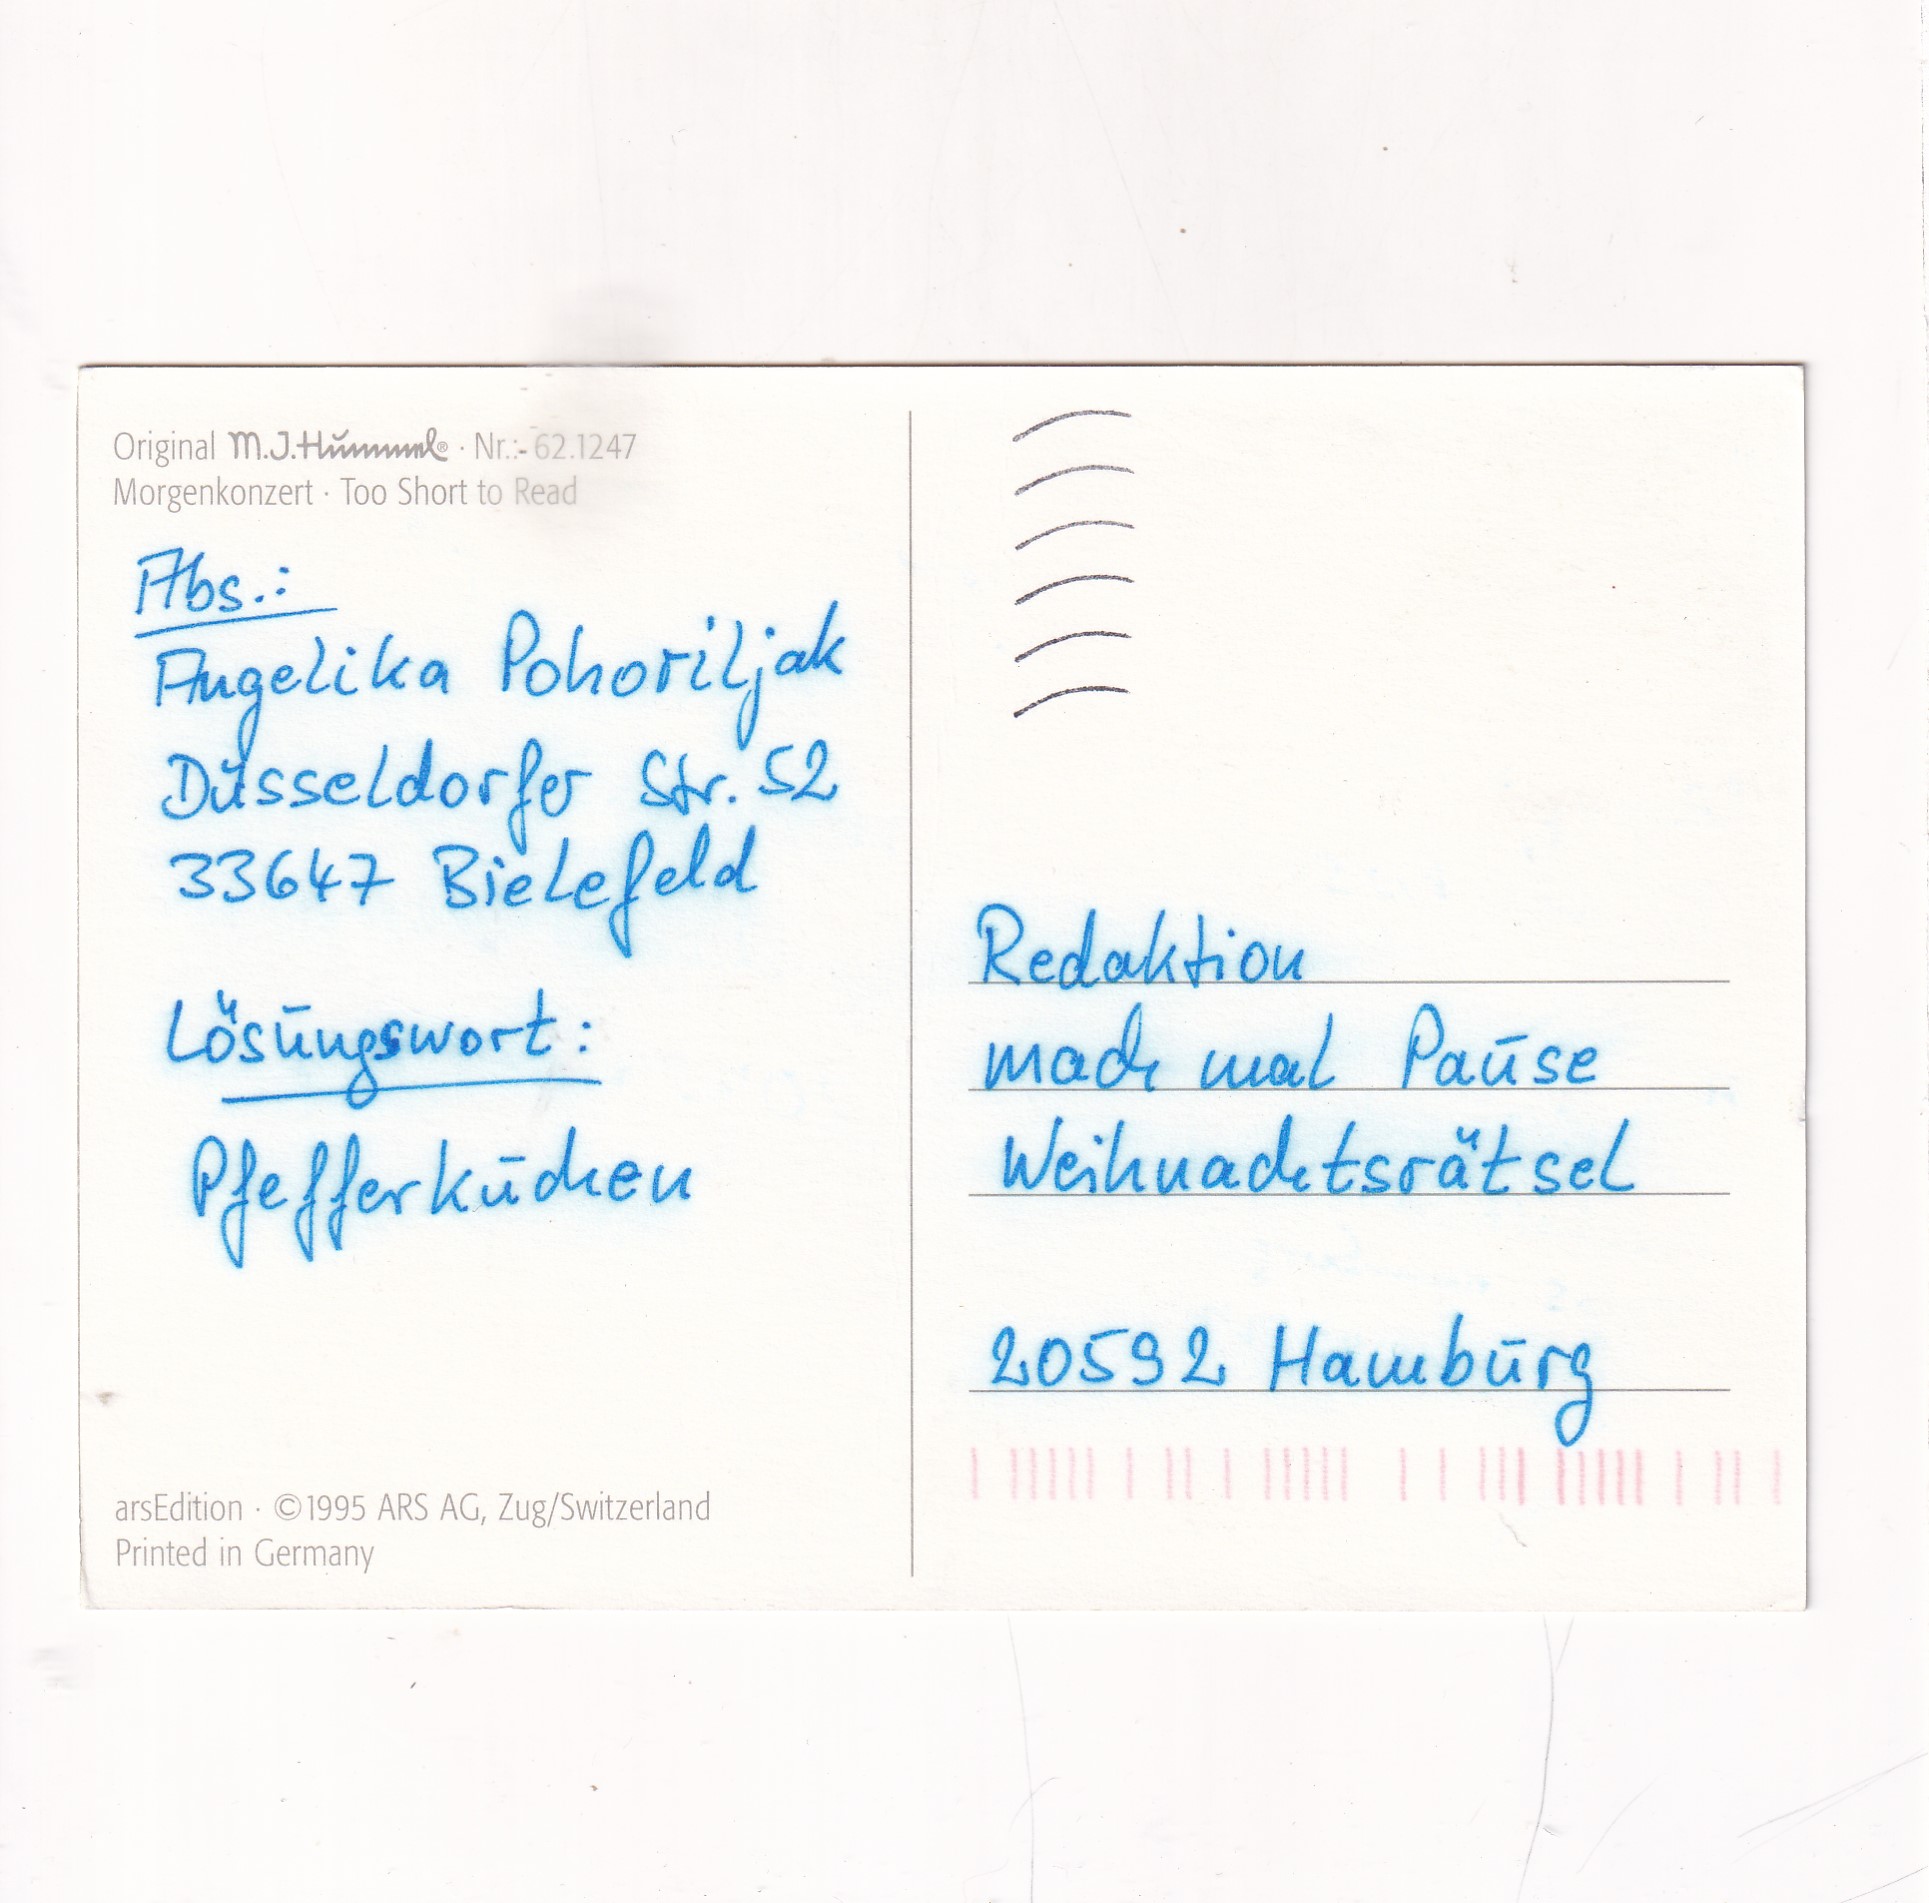 Original M.J.Hummel® · Nr.: 62.1247
Morgenkonzert · Too Short to Read
Abs.:
Angelika Pohoriljak
Düsseldorfer Str. 52
33647 Bielefeld
Lösungswort:
Pfefferkuchen
arsEdition · ©1995 ARS AG, Zug/Switzerland
Printed in Germany
Redaktion
mach mal Pause
Weihnachtsrätsel
20592 Hamburg